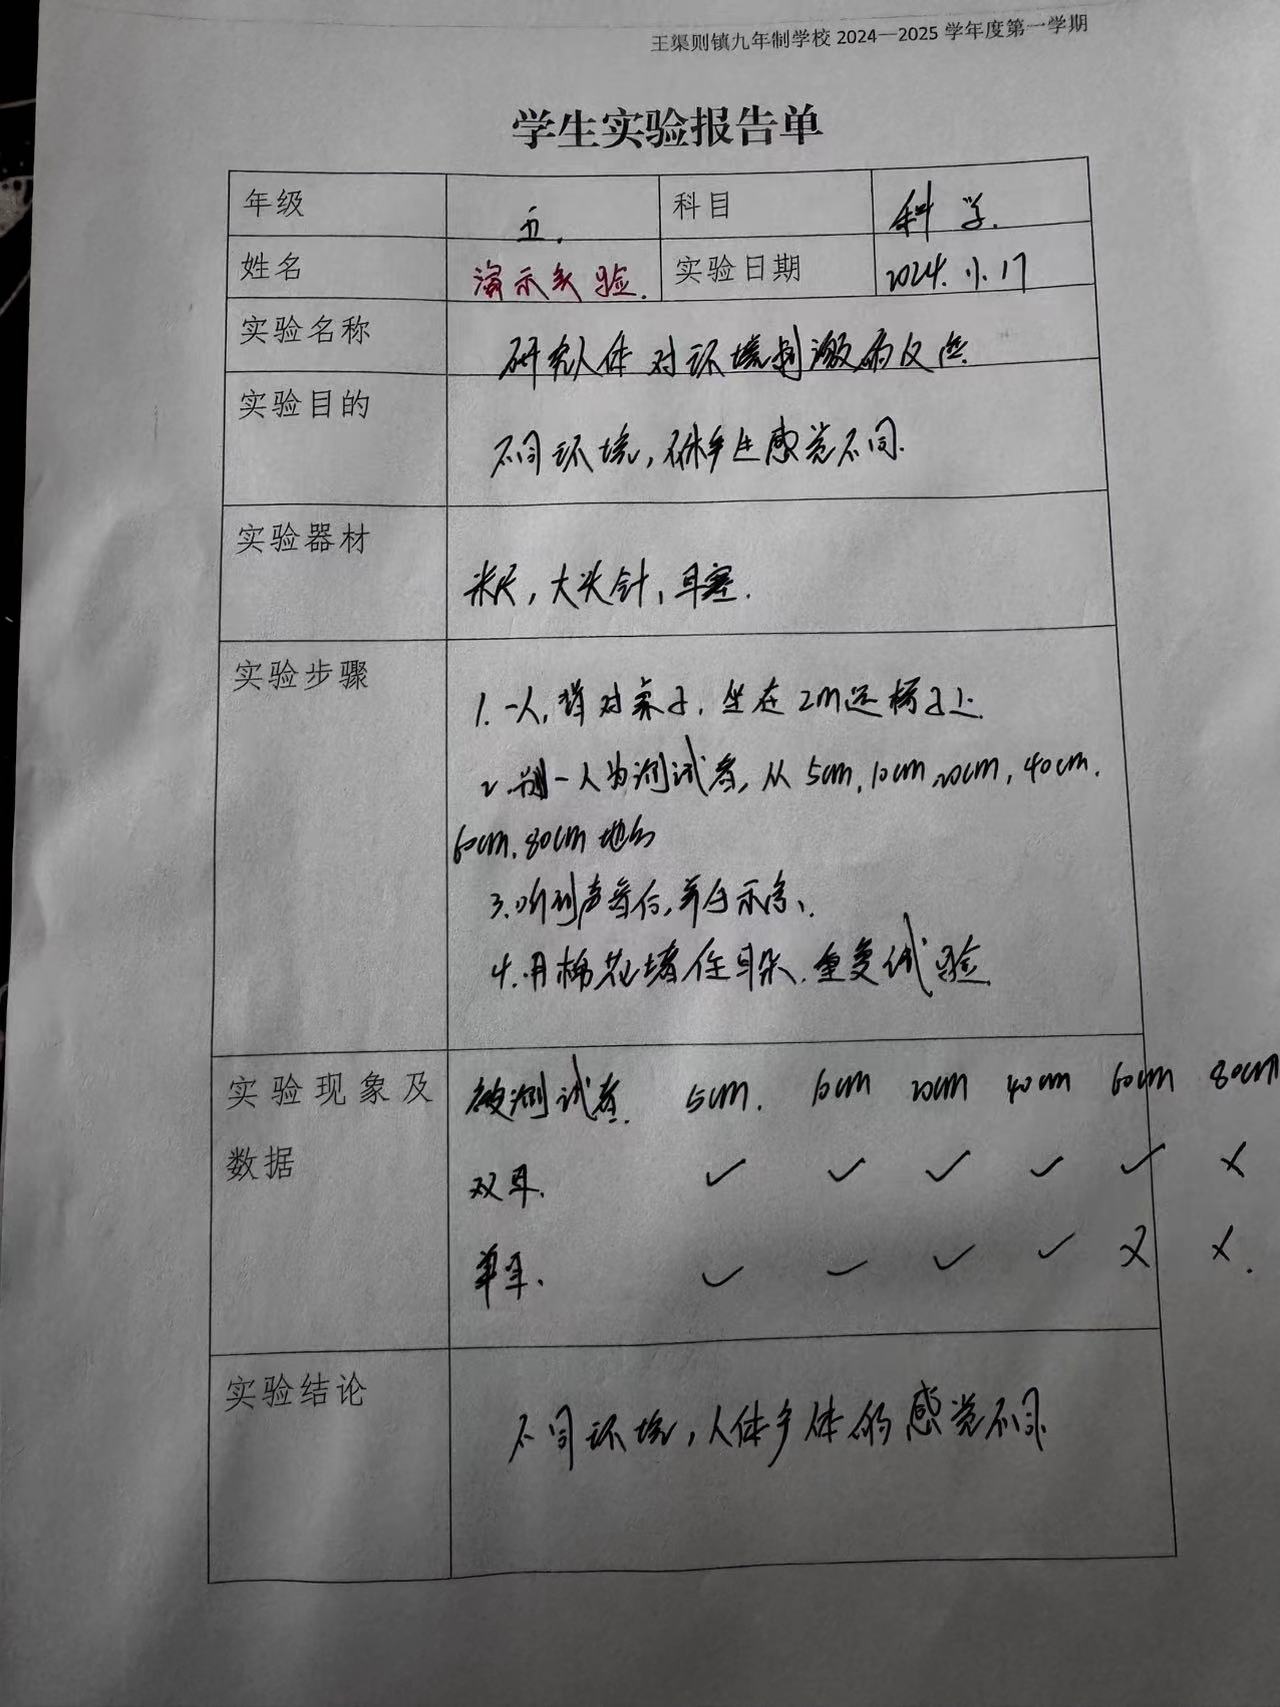 王渠则镇九年制学校 2024—2025 学年度第一学期
学生实验报告单
年级 五. 科目 科学.
姓名 演示实验. 实验日期 2024.11.17
实验名称 研究人体对环境刺激的反应.
实验目的 不同环境,身体产生感觉不同.
实验器材 米尺,大头针,耳塞.
实验步骤 1.一人,背对桌子,坐在2m远椅子上.
2.另一人为测试者,从5cm,10cm,20cm,40cm,
60cm,80cm 地方
3.听到声音后,举手示意.
4.用棉花堵住耳朵,重复试验
实验现象及 被测试者. 5cm. 10cm 20cm 40cm 60cm 80cm
数据 双耳. ✓ ✓ ✓ ✓ ✓ ×
单耳. ✓ ✓ ✓ ✓ × ×.
实验结论 不同环境,人体产体的感觉不同.